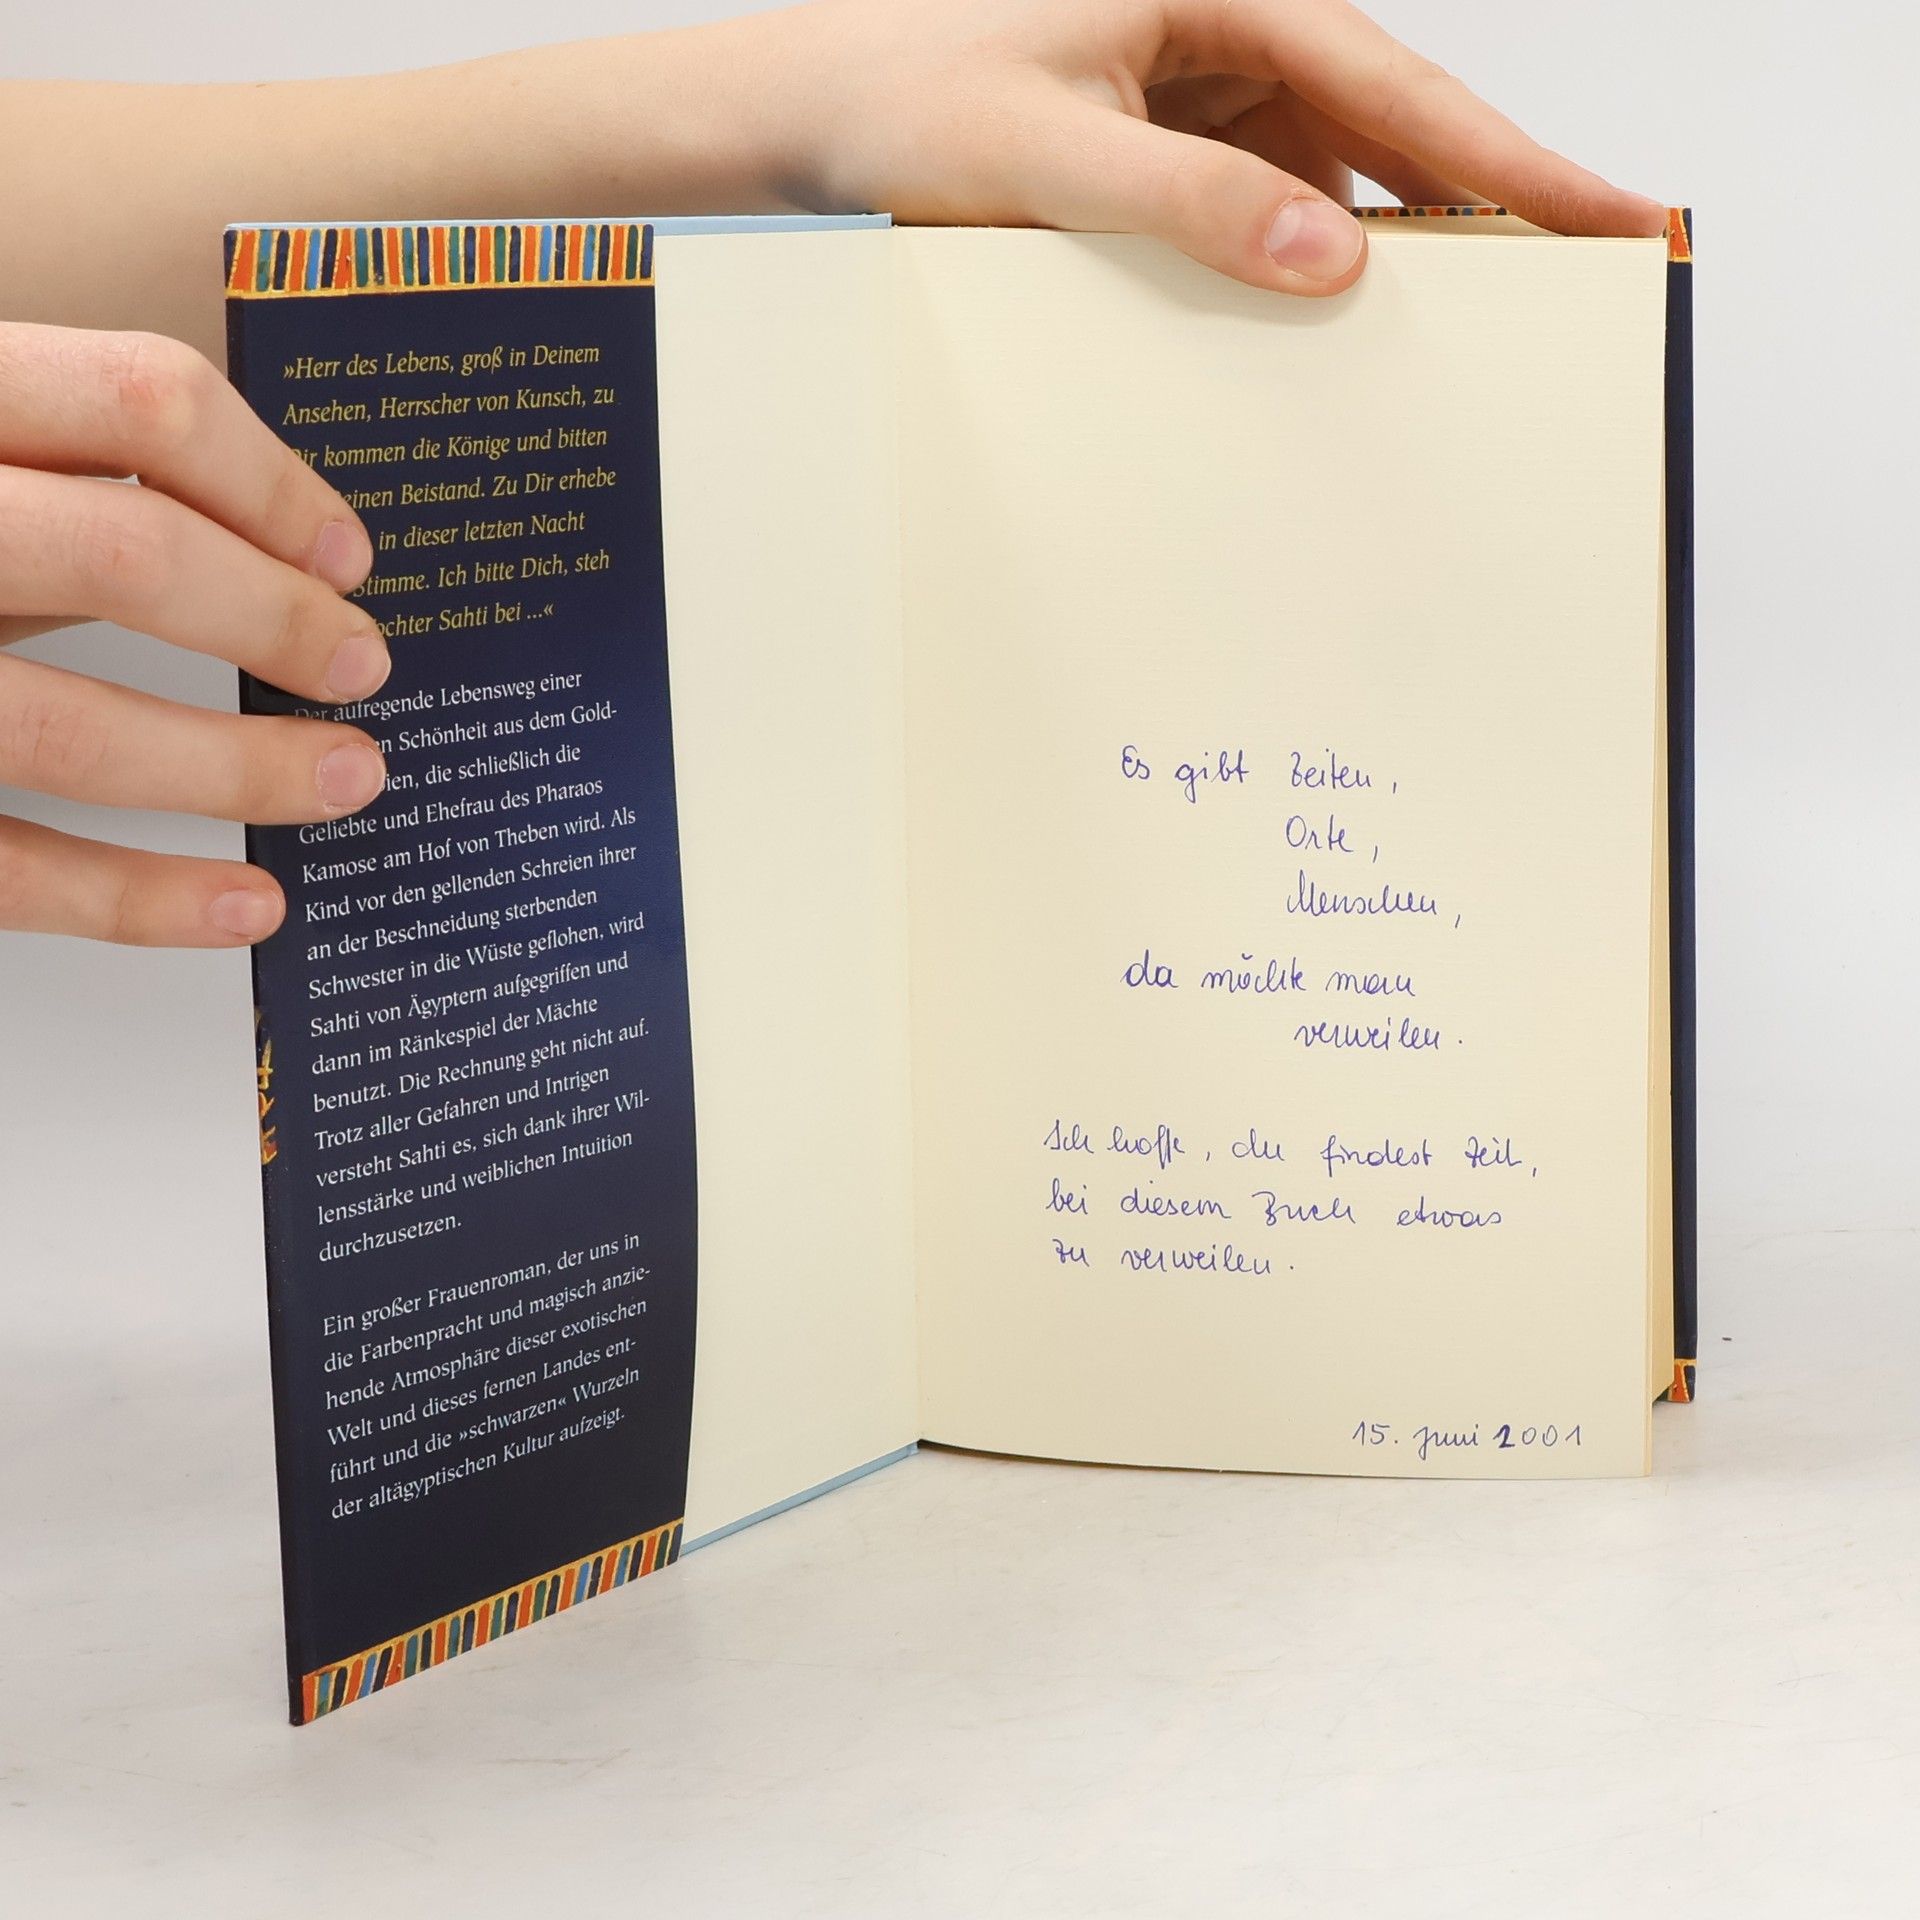 »Herr des Lebens, groß in Deinem
Ansehen, Herrscher von Kunsch, zu
Dir kommen die Könige und bitten
einen Beistand. Zu Dir erhebe
in dieser letzten Nacht
Stimme. Ich bitte Dich, steh
ochter Sahti bei ...«
Der aufregende Lebensweg einer
n Schönheit aus dem Gold-
ien, die schließlich die
Geliebte und Ehefrau des Pharaos
Kamose am Hof von Theben wird. Als
Kind vor den gellenden Schreien ihrer
an der Beschneidung sterbenden
Schwester in die Wüste geflohen, wird
Sahti von Ägyptern aufgegriffen und
dann im Ränkespiel der Mächte
benutzt. Die Rechnung geht nicht auf.
Trotz aller Gefahren und Intrigen
versteht Sahti es, sich dank ihrer Wil-
lensstärke und weiblichen Intuition
durchzusetzen.
Ein großer Frauenroman, der uns in
die Farbenpracht und magisch anzie-
hende Atmosphäre dieser exotischen
Welt und dieses fernen Landes ent-
führt und die »schwarzen« Wurzeln
der altägyptischen Kultur aufzeigt.
Es gibt Zeiten,
Orte,
Menschen,
da möchte man
verweilen.
Ich hoffe, du findest Zeit,
bei diesem Buch etwas
zu verweilen.
15. Juni 2001